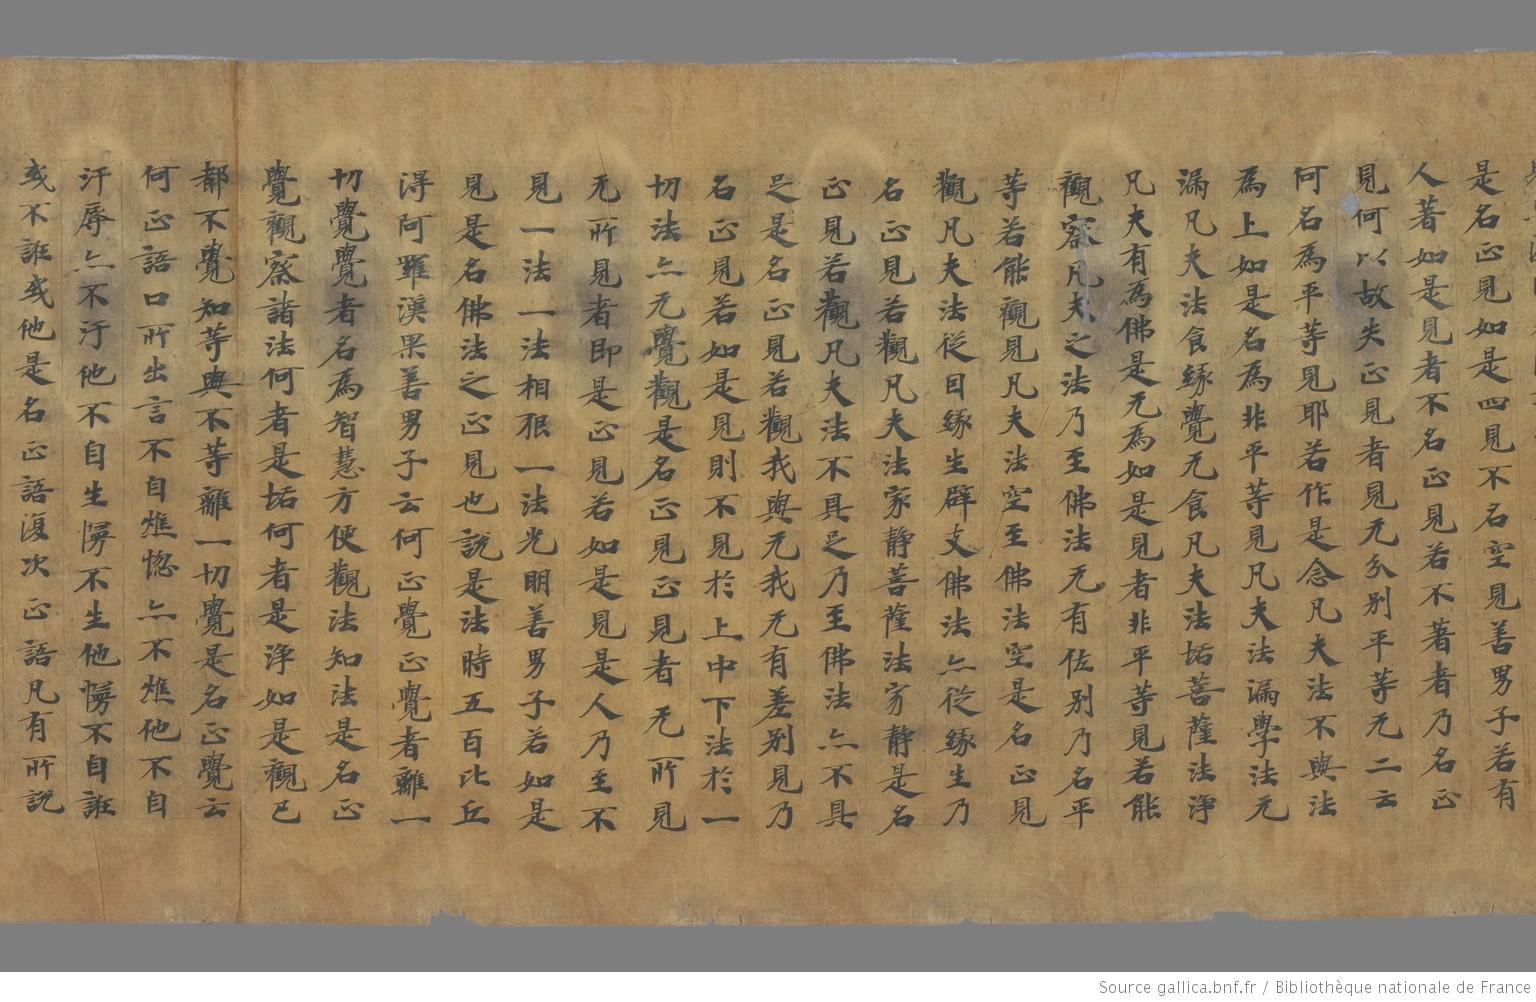 是名正見如是四見不名空見善男子若有
人著如是見者不名正見若不著者乃名正
見何以故失正見者見无分别平等无二云
何名為平等見耶若作是念凡夫法不與法
為上如是名為非平等見凡夫法漏學法无
漏凡夫法食緣覺无食凡夫法垢菩薩法淨
凡夫有為佛是无為如是見者非平等見若能
觀察凡夫之法乃至佛法无有佐别乃名平
等若能觀見凡夫法空至佛法空是名正見
觀凡夫法從因緣生辟支佛法亦從緣生乃
名正見若觀凡夫法家静菩薩法家静是名
正見若觀凡夫法不具足乃至佛法亦不具
足是名正見若觀我與无我无有差别見乃
名正見若如是見則不見於上中下法於一
切法亦无覺觀是名正見正見者无所見
无所見者即是正見若如是見是人乃至不
見一法一法相狠一法光明善男子若如是
見是名佛法之正見也說是法時五百比丘
得阿羅漢果善男子云何正覺正覺者離一
切覺覺者名為智慧方便觀法知法是名正
覺觀察諸法何者是垢何者是淨如是觀已
都不覺知等與不等離一切覺是名正覺云
何正語口所出言不自燋惚亦不燋他不自
汙辱亦不汙他不自生慢不生他慢不自誑
或不誑或他是名正語復次正語凡有所說
Source gallica.bnf.fr / Bibliothèque nationale de France